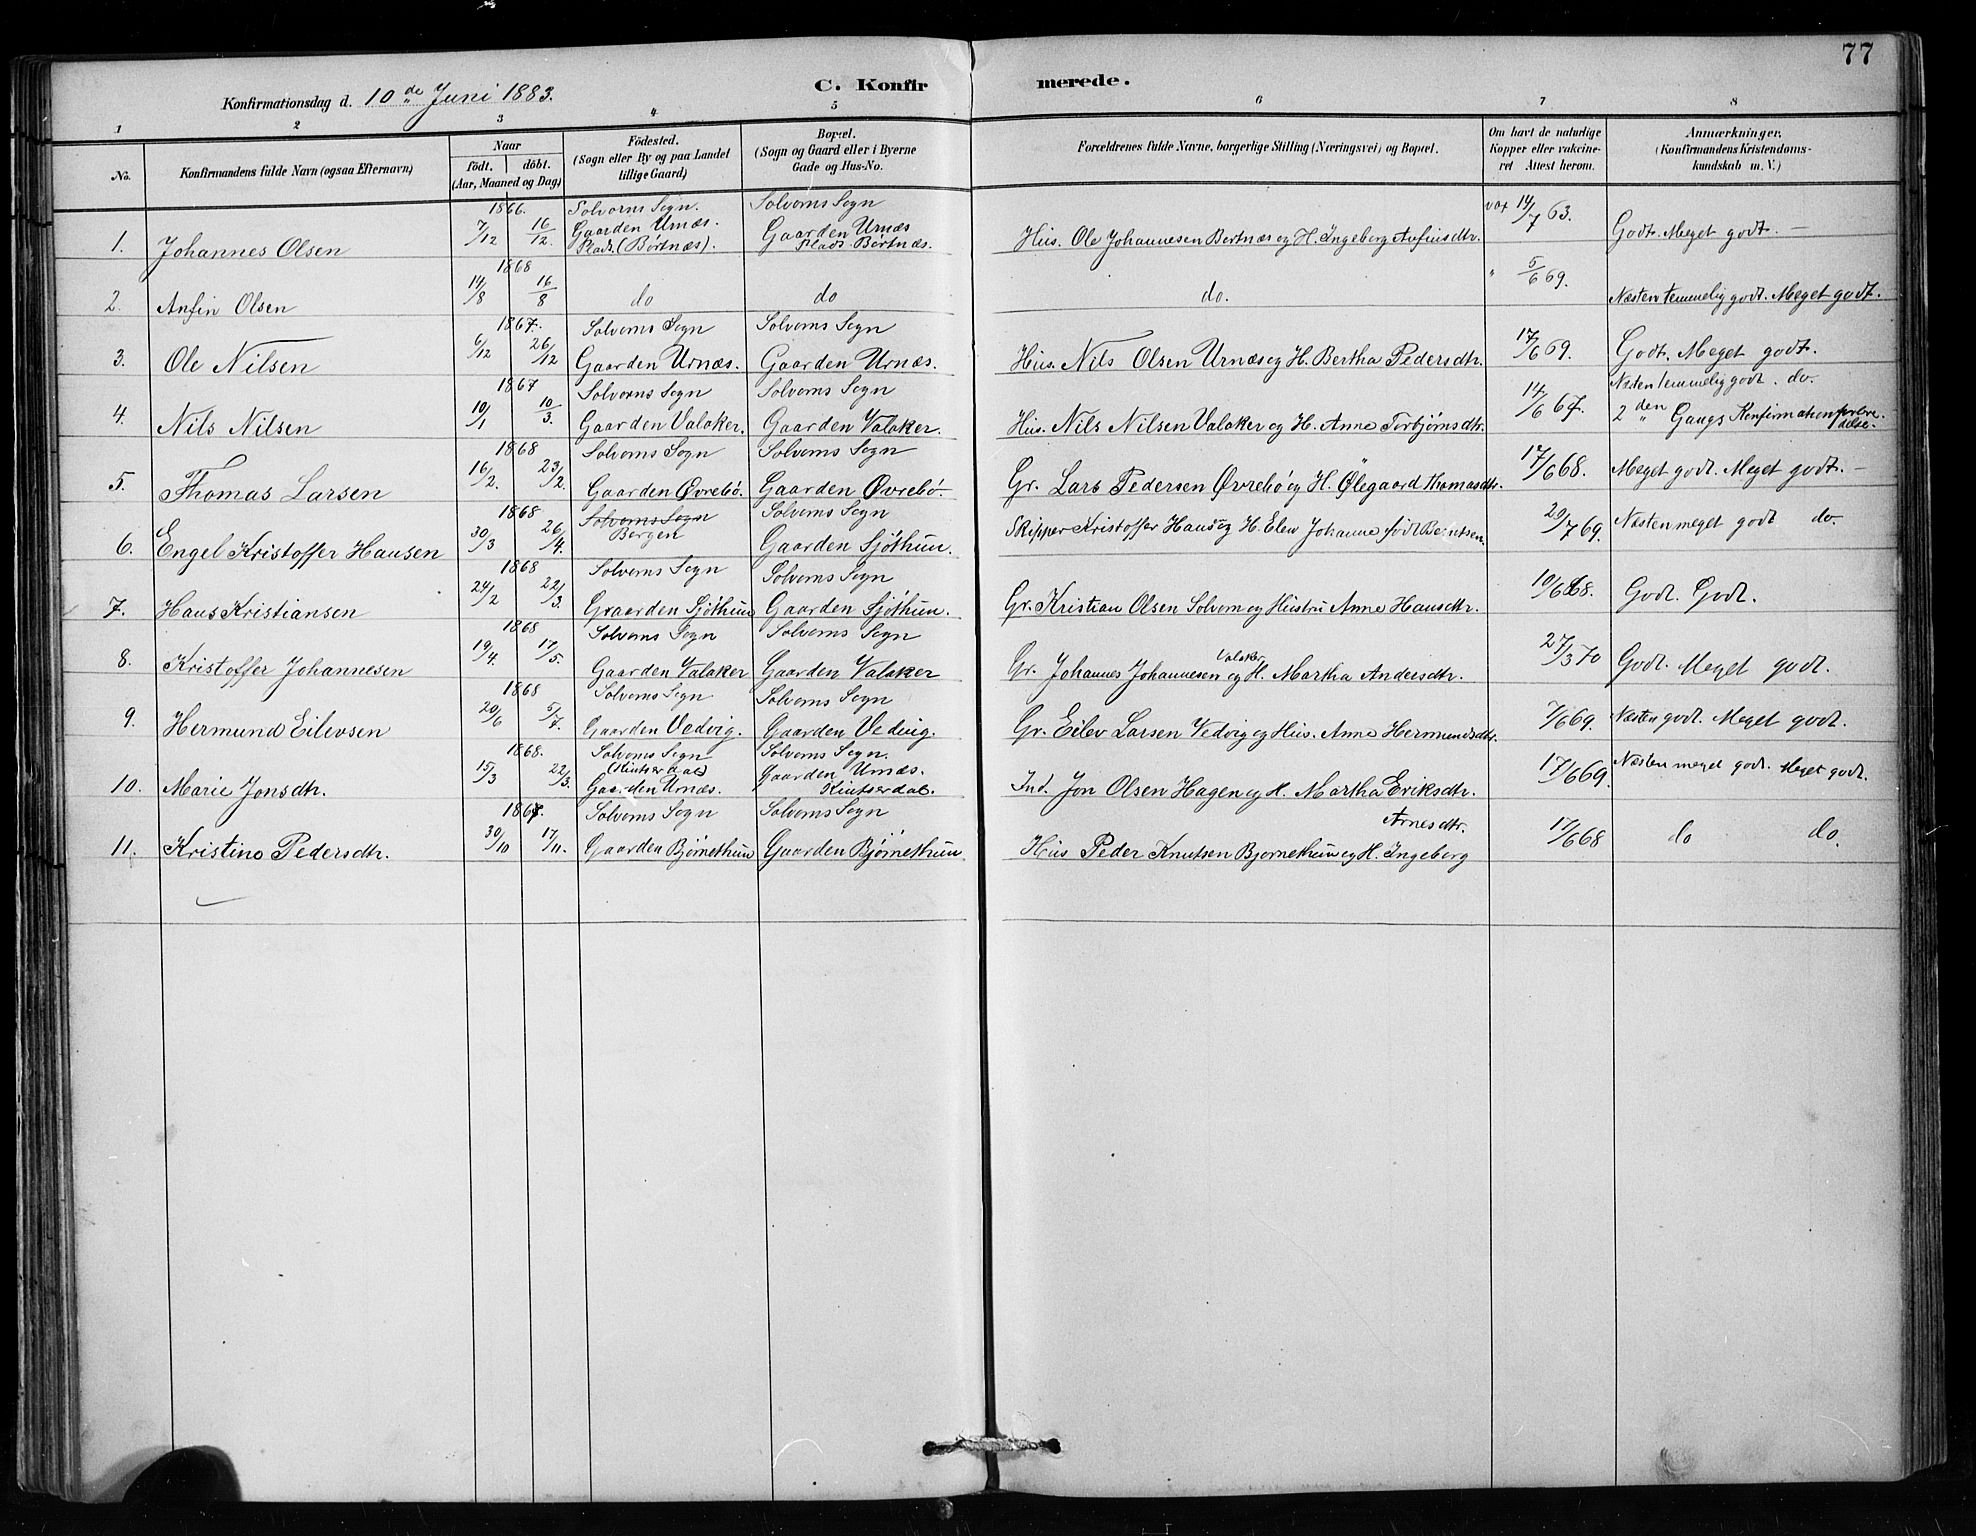 77
C. Konfirmerede.
Konfirmationsdag d. 10de Juni 1883.
1 2 3 4 5 6 7 8
No.
Konfirmandens fulde Navn (ogsaa Efternavn)
Naar
födt. döbt.
(Aar, Maaned og Dag)
Födested.
(Sogn eller By og paa Landet
tillige Gaard)
Bopæl.
(Sogn og Gaard eller i Byerne
Gade og Hus-No.
Forældrenes fulde Navne, borgerlige Stilling (Næringsvei) og Bopæl.
Om havt de naturlige
Kopper eller vakcine-
ret Attest herom.
Anmærkninger.
(Konfirmandens Kristendoms-
kundskab m. V.)
1866. Solvorns Sogn. Solvorns Sogn
1. Johannes Olsen 7/12 16/12. Gaarden Urnæs. Plads. (Børtnæs). Gaarden Urnæs Plads Børtnæs. Hus. Ole Johannesen Bertnæs og H. Ingeborg Anfinsdtr. vax 14/7 63. Godt. Meget godt. —
1868
2. Anfin Olsen 14/8 16/8 do do do. " 5/6 69. Næsten temmelig godt. Meget godt.
1867. Solvorns Sogn Solvorns Sogn
3. Ole Nilsen 6/12 26/12 Gaarden Urnæs. Gaarden Urnæs. Hus. Nils Olsen Urnæs og H. Bertha Pedersdtr. 17/6 69. Godt. Meget godt.
1867 Solvorns Sogn Solvorns Sogn Næsten temmelig godt. do.
4. Nils Nilsen 10/1 10/3. Gaarden Valaker. Gaarden Valaker. Hus. Nils Nilsen Valaker og H. Anna Torbjørnsdtr. 14/6 67. 2den Gangs Konfirmationsforberedelse.
1868 Solvorns Sogn Solvorns Sogn
5. Thomas Larsen 16/2. 23/2. Gaarden Øvrebö. Gaarden Øvrebö. Gr. Lars Pedersen Øvrebö og H. Ölegaard Thomasdtr. 17/6 68. Meget godt. Meget godt. —
1868 Solvorns Sogn Solvorns Sogn
6. Engel Kristoffer Hansen 30/3 26/4. Bergen Gaarden Sjøthun. Skipper Kristoffer Hans og H. Elen Johanne født Berntsen. 20/7 69. Næsten meget godt do.
1868 Solvorns Sogn Solvorns Sogn
7. Hans Kristiansen 24/2 22/3. Graarden Sjøthun Gaarden Sjøthun. Gr. Kristian Olsen Solvorn og Hustru Anna Hansdtr. 10/6 68. Godt. Godt.
1868 Solvorns Sogn Solvorns Sogn
8. Kristoffer Johannesen 19/4. 17/5. Gaarden Valaker Gaarden Valaker Gr. Johannes Johannesen Valaker og H. Martha Andersdtr. 27/3 70 Godt. Meget godt.
1868 Solvorns Sogn Solvorns Sogn
9. Hermund Eilevsen 20/6 5/7. Gaarden Vedvig. Gaarden Vedvig. Gr. Eilev Larsen Vedvig og Hus. Anna Hermundsdtr. 7/6 69. Næsten godt. Meget godt.
1868. Solvorns Sogn Solvorns Sogn.
10. Marie Jonsdtr. 15/3 22/3. (Kintserdal) Gaarden Urnæs. Gaarden Urnæs. Kintserdal. Ind. Jon Olsen Hagen og H. Martha Eriksdtr. 17/6 69. Næsten meget godt. Meget godt.
1867. Solvorns Sogn Solvorns Sogn
11. Kristine Pedersdtr. 30/10 17/11. Gaarden Bjørnethun Gaarden Bjørnethun Hus Peder Knutsen Bjornethun og H. Ingeborg Arnesdtr. 17/6 68 do do.